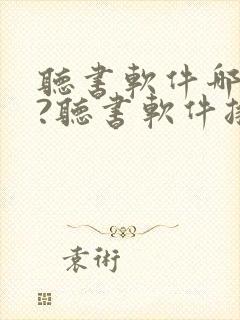 聽書軟件哪
?聽書軟件推
袁術